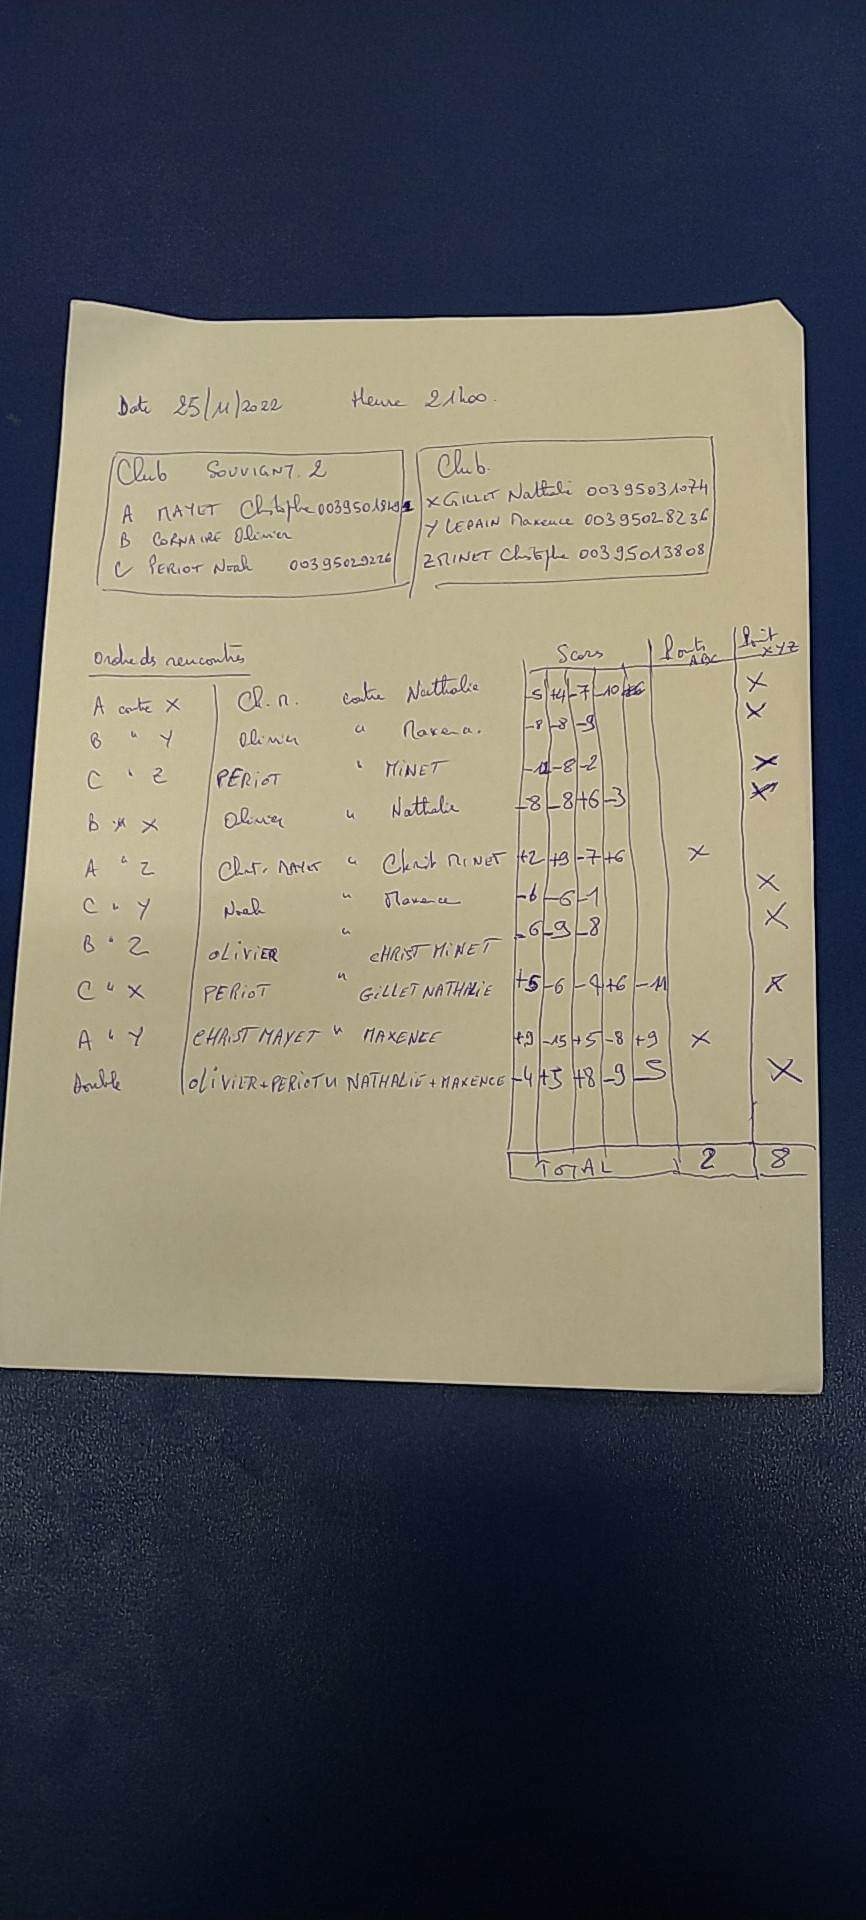 Date 25/11/2022 Heure 21h00.
Club SOUVIGNY. 2
A MAYET Christophe
B CORNAIRE Olivier
C PERIOT Noah 00395029226
Club.
X GILLET Nathalie 00395031074
Y LEPAIN Maxence 00395028236
Z MINET Christophe 00395013808
Ordre des rencontres Scores Points ABC Point XYZ
A contre X Ch. M. contre Nathalie -5 +4 -7 -10 X
B " Y Olivier " Maxence. -8 -8 -9 X
C " Z PERIOT " MINET -11 -8 -2 X
B " X Olivier " Nathalie -8 -8 +6 -3 X
A " Z Christ. MAYET " Christ MINET +2 +9 -7 +6 X
C " Y Noah " Maxence -6 -6 -1 X
B " Z OLIVIER " CHRIST MINET -6 -9 -8 X
C " X PERIOT " GILLET NATHALIE +5 -6 -4 +6 -11 X
A " Y CHRIST MAYET " MAXENCE +9 -15 +5 -8 +9 X
Double OLIVIER+PERIOT " NATHALIE+MAXENCE -4 +5 +8 -9 -5 X
TOTAL 2 8